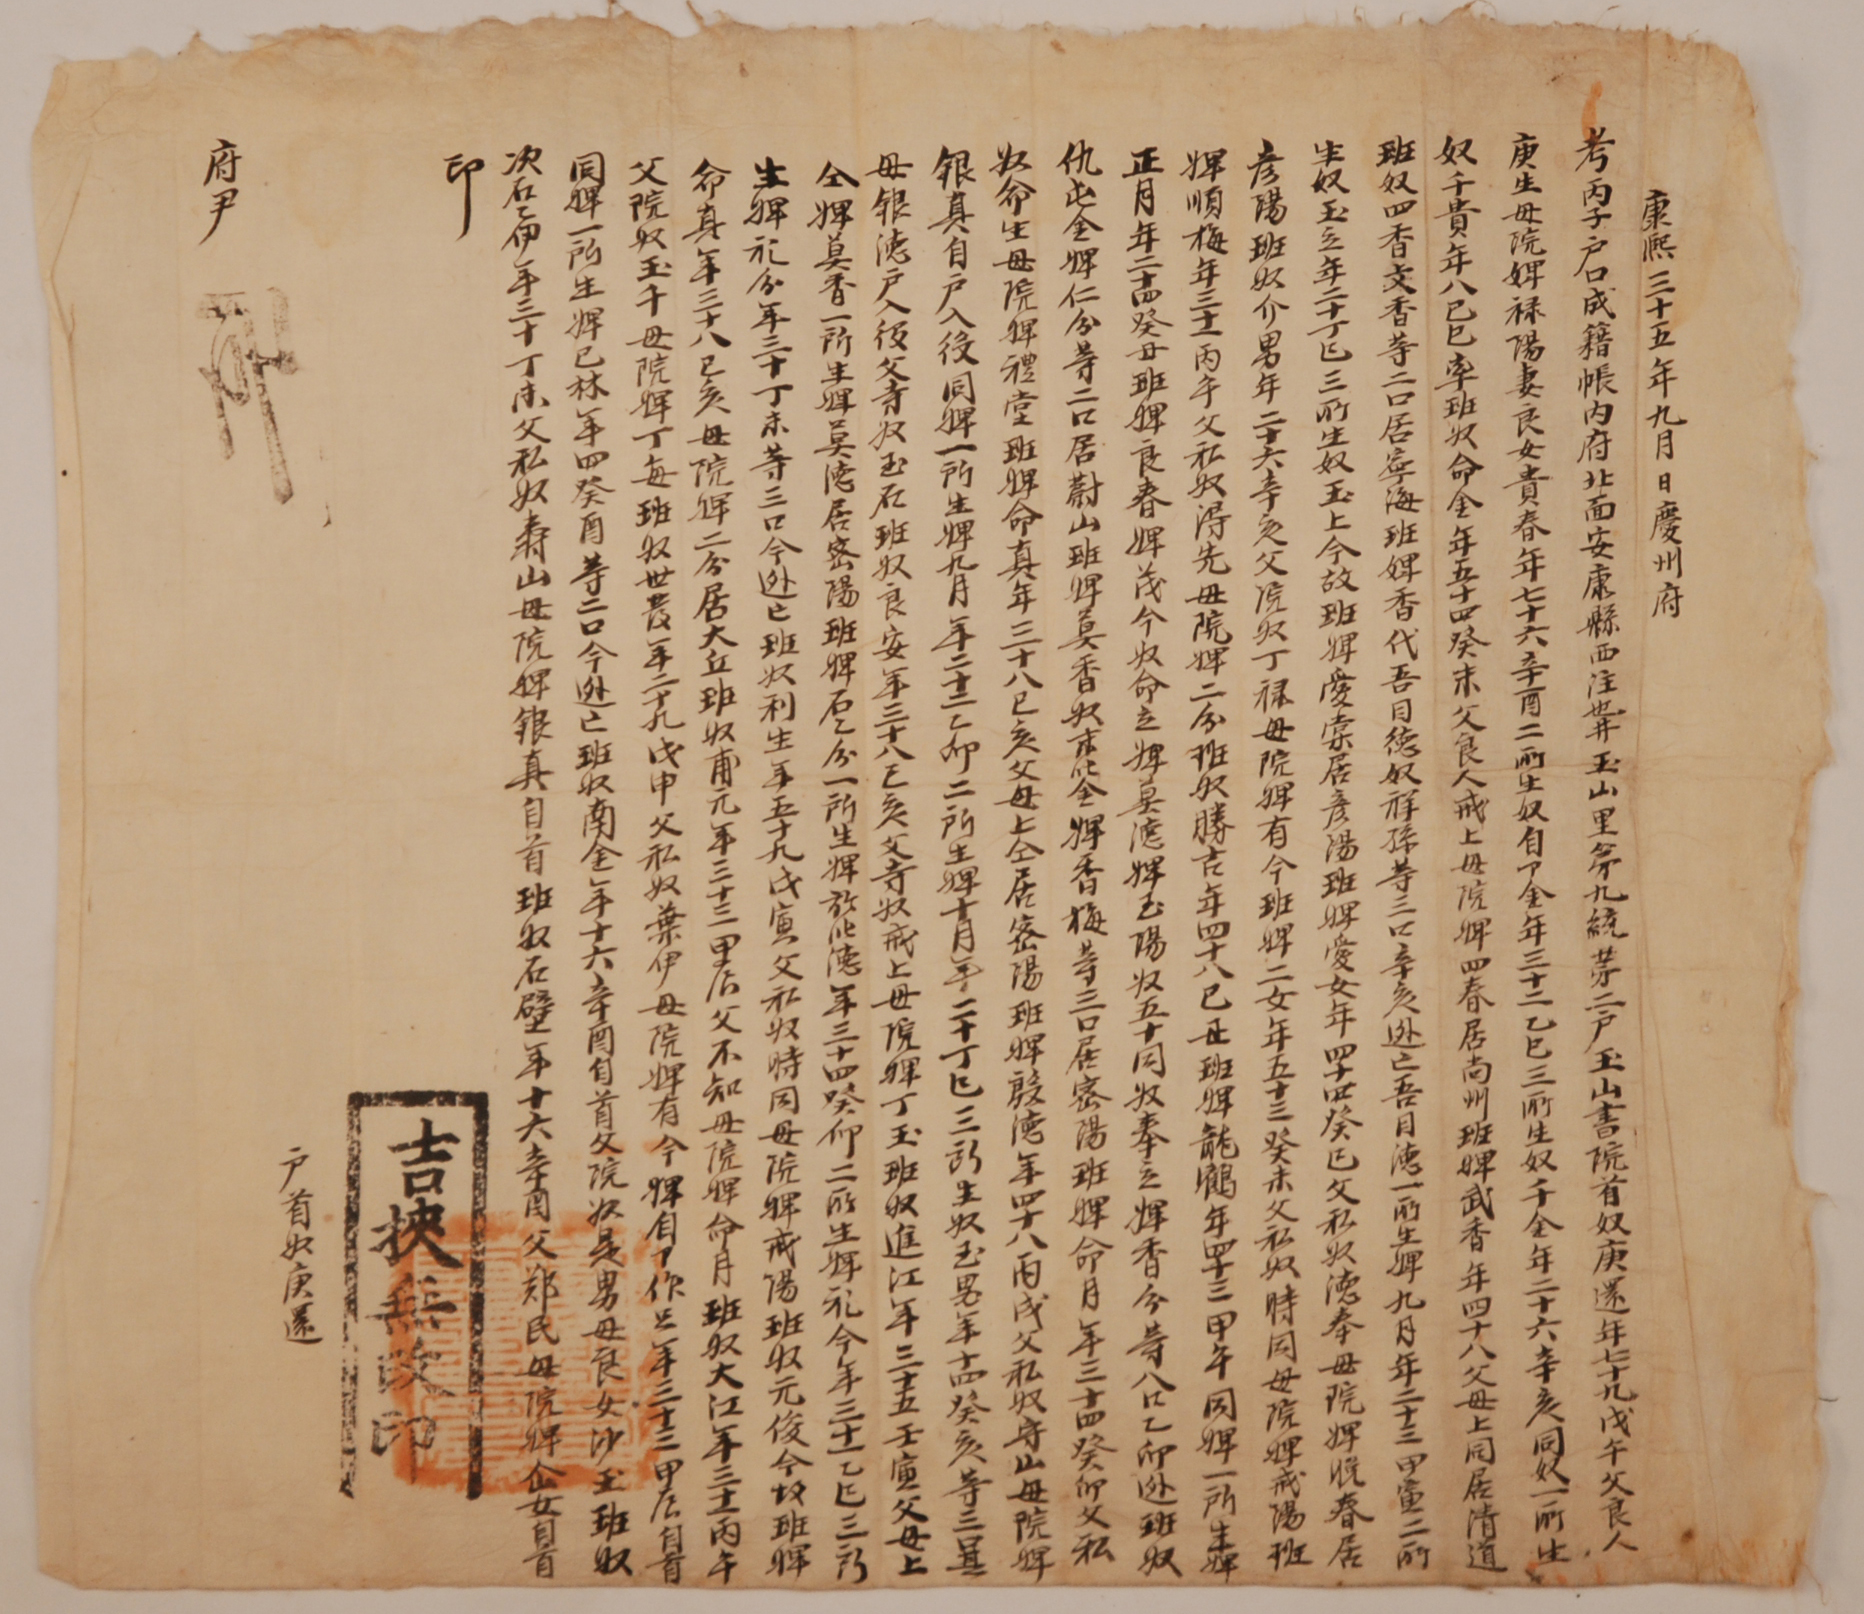 康熙三十五年九月日慶州府
考丙子戶口成籍帳內府北面安康縣西注乶井玉山里第九統第二戶玉山書院首奴庚還年七十九戊午父良人
庚生母院婢祿陽妻良女貴春年七十六辛酉二所生奴自卩金年三十二乙巳三所生奴千金年二十六辛亥同奴一所生
奴千貴年八己巳率班奴命金年五十四癸未父良人戒上母院婢四春居尙州班婢武香年四十八父母上同居淸道
班奴四香文香等二口居寧海班婢香代吾目德奴祥孫等三口辛亥迯亡吾目德一所生婢九月年二十三甲寅二所
生奴玉立年二十丁巳三所生奴玉上今故班婢愛棠居彦陽班婢愛女年四十四癸巳父私奴德奉母院婢晩春居
彦陽班奴介男年二十六辛亥父院奴丁祿母院婢有今班婢二女年五十三癸未父私奴時同母院婢戒陽班
婢順梅年三十一丙午父私奴得先母院婢二分班奴勝吉年四十八己丑班婢龍鶴年四十三甲午同婢一所生婢
正月年二十四癸丑班婢良春婢茂今奴命立婢莫德婢玉陽奴五十同奴奉立婢香今等八口乙卯迯班奴
仇屯金婢仁分等二口居蔚山班婢莫香奴末叱金婢香梅等三口居密陽班婢命月年三十四癸卯父私
奴命生母院婢禮堂班婢命真年三十八己亥父母上仝居密陽班婢殷德年四十八丙戌父私奴守山母院婢
銀真自戶入役同婢一所生婢九月年二十二乙卯二所生婢十月年二十丁巳三所生奴玉男年十四癸亥等三昆
母銀德戶入役父寺奴玉石班奴良安年三十八己亥父寺奴戒上母院婢丁玉班奴進江年三十五壬寅父母上
仝婢莫香一所生婢莫德居密陽班婢石乙分一所生婢於叱德年三十四癸卯二所生婢礼今年三十一乙巳三所
生婢礼分年三十丁未等三口今迯亡班奴利生年五十九戊寅父私奴時同母院婢戒陽班奴元俊今故班婢
命真年三十八己亥母院婢二分居大丘班奴甫元年三十三甲辰父不知母院婢命月班奴大江年三十一丙午
父院奴玉千母院婢丁每班奴世發年二十九戊申父私奴葉伊母院婢有今婢自卩作只年三十三甲辰自首
同婢一所生婢已林年四癸酉等二口今迯亡班奴南金年十六辛酉自首父院奴是男母良女沙玉班奴
次石乙伊年三十丁未父私奴壽山母院婢銀真自首班奴石壁年十六辛酉父鄭民母院婢企女自首
印
吉挾無改印
戶首奴庚還
府尹